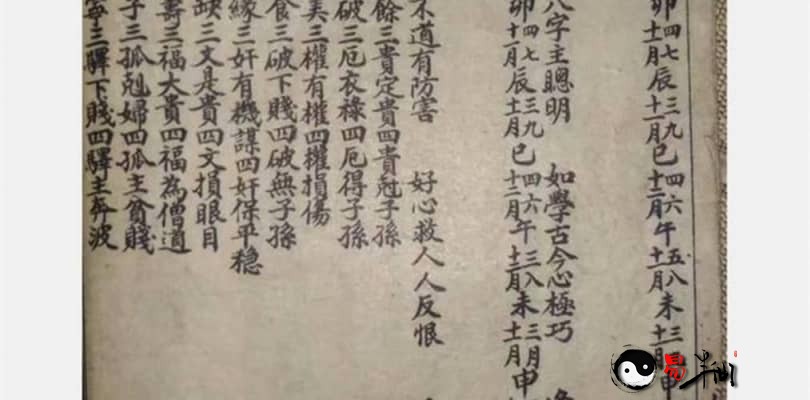 卯四七十二月辰三九十一月巳四六十二月午五八十一月未三
八字主聰明　如學古今心極巧
卯四七十一月辰三九十二月巳四六十二月午三八十二月未三月十一月申
不道有防害　好心救人人反恨
餘三貴定貴四貴尅子孫
破三厄衣祿四厄得子孫
美三權有權四權損傷
食三破下賤四破無子孫
緣三奸有機謀四奸保平穩
缺三文是貴四文損眼目
壽三福大貴四福為僧道
子三孤尅婦四孤主貧賤
三驛下賤四驛主奔波
易